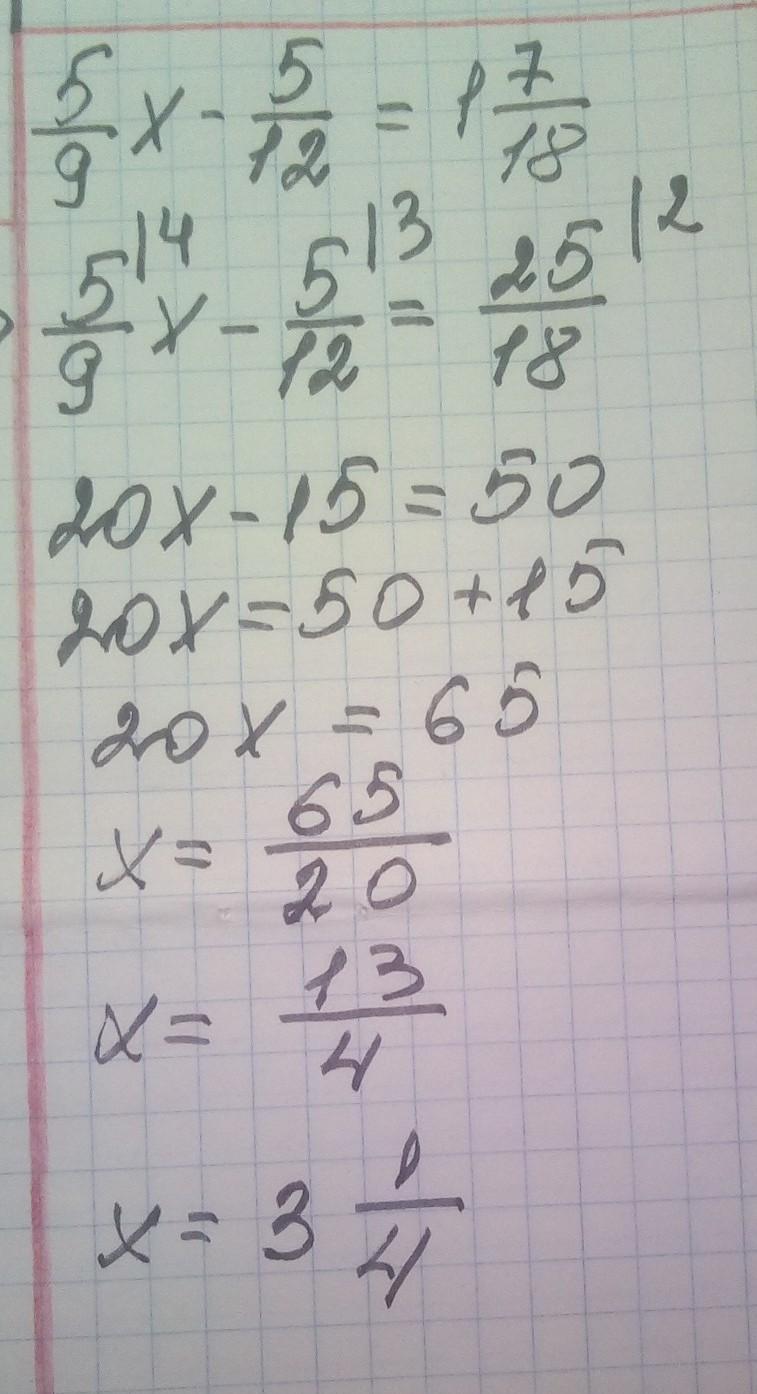 5/9 x - 5/12 = 1 7/18
5/9 |4 x - 5/12 |3 = 25/18 |2
20x - 15 = 50
20x = 50 + 15
20x = 65
x = 65/20
x = 13/4
x = 3 1/4